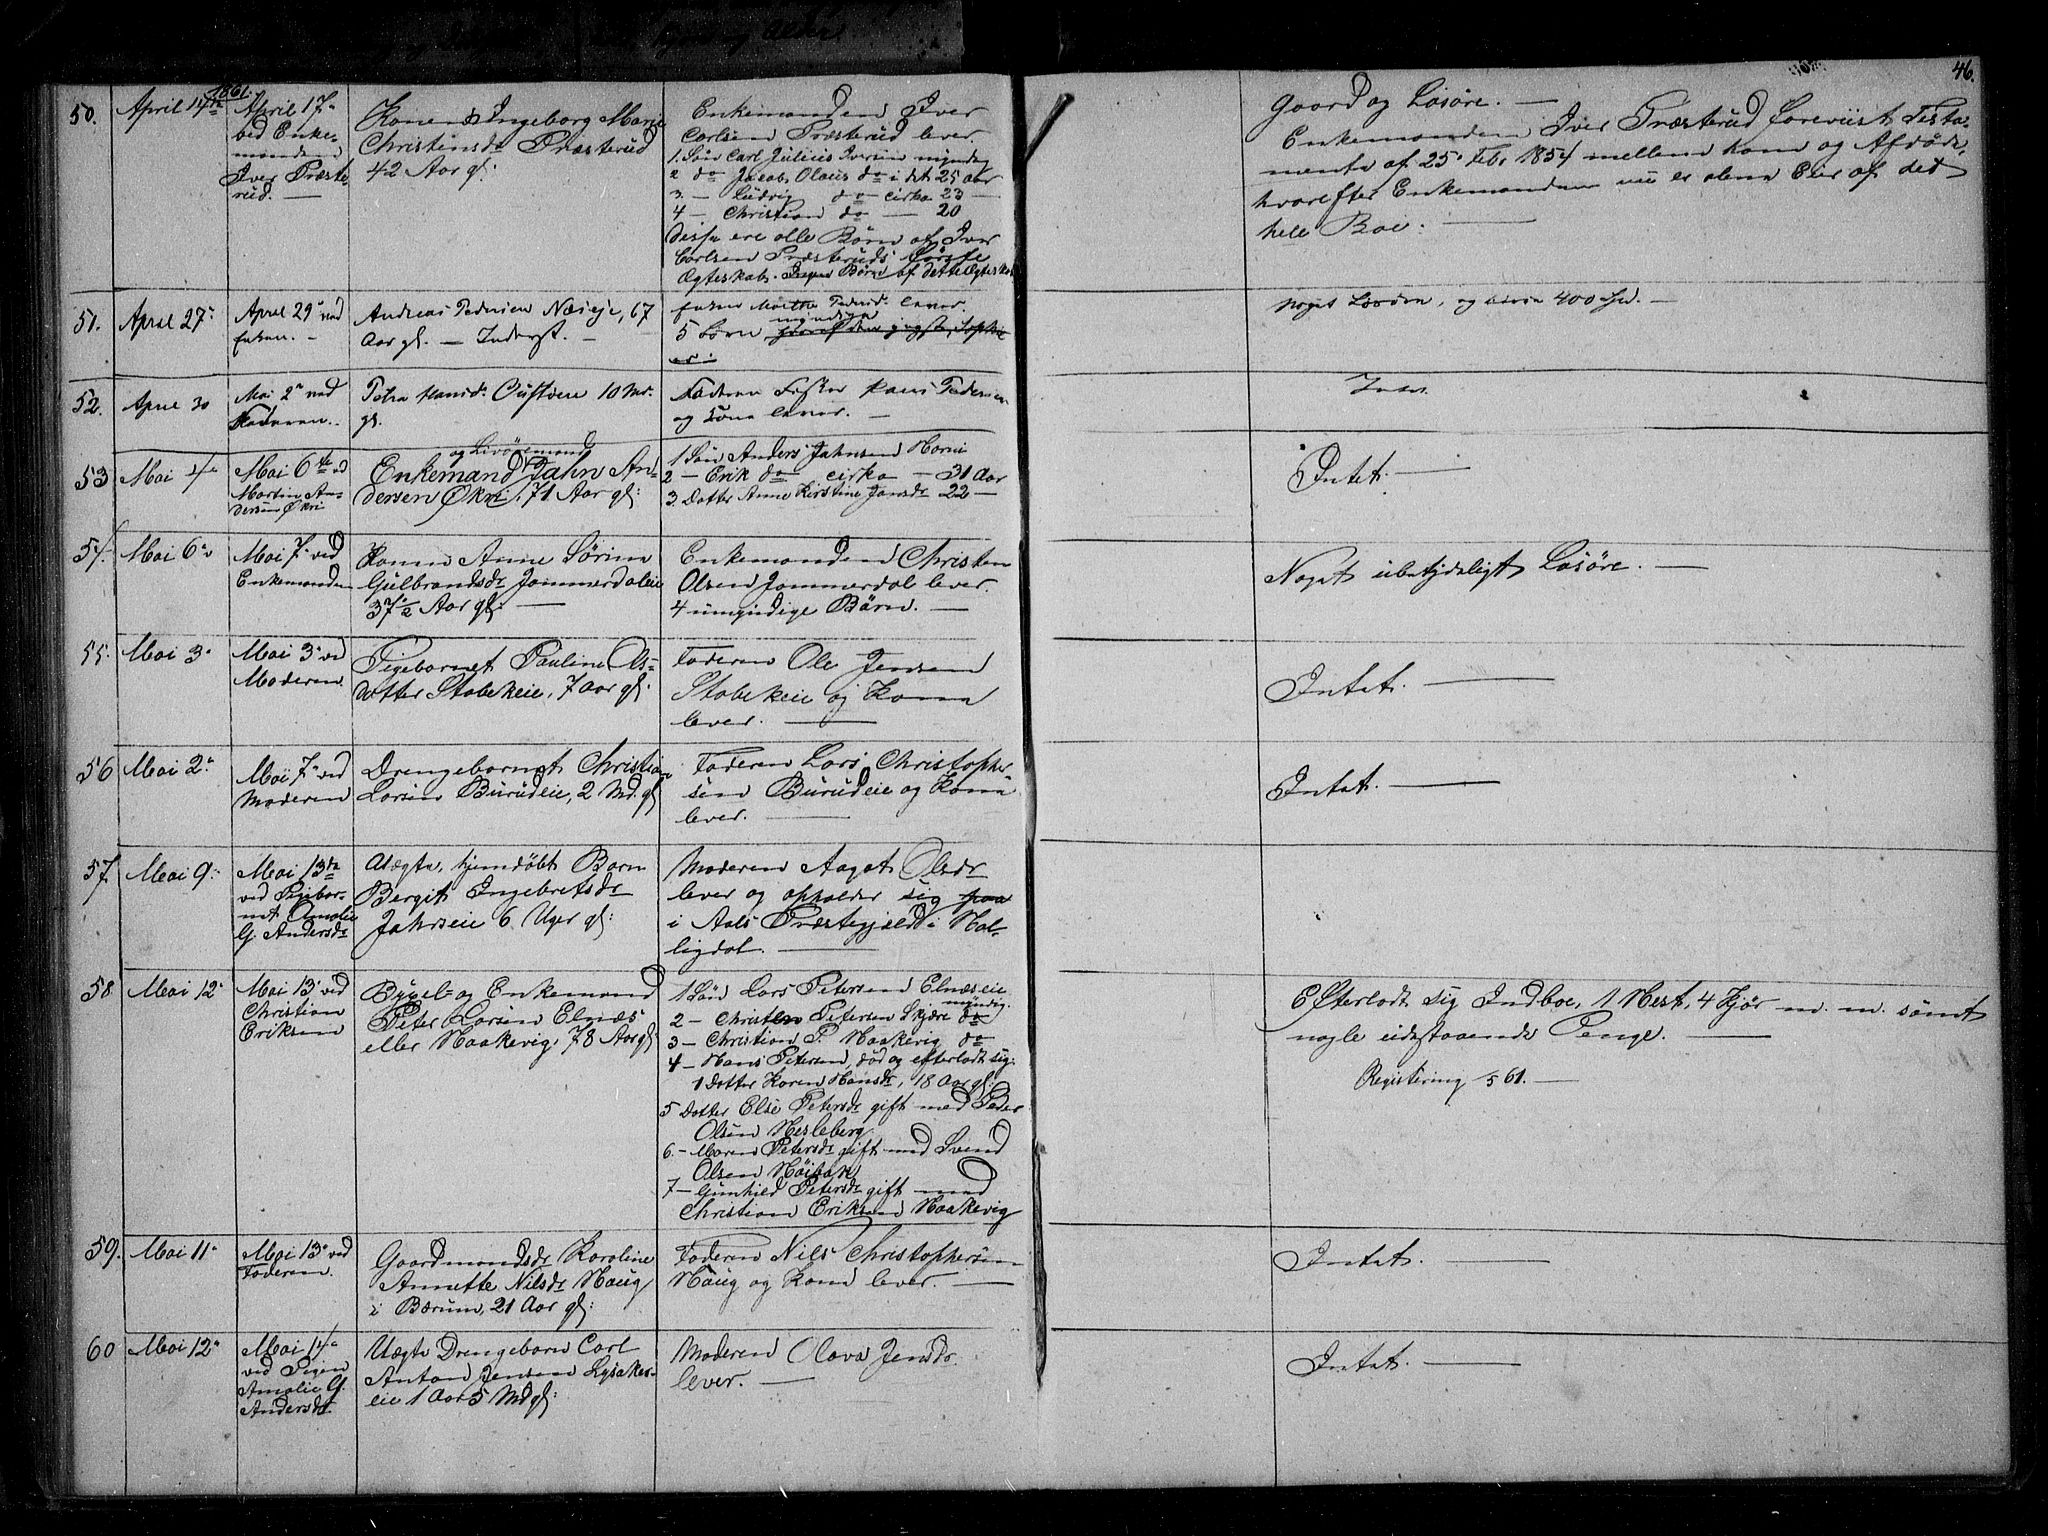 46.
1861.
50.
April 14de
April 17de
ved Enke-
manden
Iver Præste-
rud. —
Konen Ingeborg Marie
Christinsdr Præsterud
42 Aar gl:
Enkemanden Iver
Carlsen Præsterud lever.
1. Søn Carl Julius Iversen myndig
2 do Jacob Olaus do i det 25 aar
3. — Ludvig do cirka 23 —
4 — Christian do — 20
Disse ere alle Børn af Iver
Carlsen Præsteruds første
Ægteskab. Ingen Børn af dette Ægteskab
Gaard og Løsøre. —
Enkemanden Iver Præsterud foreviist Testa-
mente af 25. Febr 1854 mellem ham og Afdøde,
hvorefter Enkemanden nu er alene Eier af det
hele Boe. —
51.
April 27.
April 29 ved
Enken. —
Andreas Pedersen Næseje, 67
Aar gl. — Inderst. —
Enken Marthe Pedersd. lever.
myndige
5 Børn
Noget Løsøre, og 400 Spd. —
52.
April 30
Mai 2 ved
Faderen.
Petra Hansd. 10 Mr.
gl.
Faderen Fisker Hans Pedersen
og Kone lever. —
Intet.
53
Mai 4de
Mai 6te ved
Martin An-
dersen Økri
og Livøremand
Enkemand Jahn An-
dersen Økri, 71 Aar gl:
1 Søn Anders Jahnsen Horni
2 — Erik do cirka — 31 Aar
3. Datter Anne Kirstine Jansdr 22 —
Intet. —
54.
Mai 6
Mai 7 ved
Enkemanden
Konen Anne Sørine
Gulbrandsdr Jammerdaleie
37½ Aar gl: —
Enkemanden Christen
Olsen Jammerdal lever.
4 umyndige Børn. —
Noget ubetydeligt Løsøre. —
55.
Mai 3
Mai 3 ved
Moderen.
Pigebarnet Pauline Ols-
datter Stabekeie, 7 Aar gl.
Faderen Ole Jensen
Stabekeie og Kone
lever. —
Intet. —
56
Mai 2.
Mai 7 ved
Moderen
Drengebarnet Christian
Larsen Burudeie, 2 Md. gl
Faderen Lars Christopher-
sen Burudeie og Kone
lever. —
Intet. —
57.
Mai 9.
Mai 13de
ved Pigebar-
net Amalie
G. Andersdr
Uægte, hjemdøbt Barn
Bergit Ingebretsdr
Jahrseie 6 Uger gl:
Moderen Aagot Olsdr
lever og opholder sig paa
i Aals Præstegjeld i Hal-
ligdal. —
58
Mai 12
Mai 13 ved
Christian
Eriksen
Byxel- og Enkemand
Peter Larsen Elnæs
eller Haakevig, 78 Aar gl
1 Søn Lars Petersen Elnæseie
myndig.
2 — Christen Petersen Skjære do
3 — Christian P. Haakevig do
4 — Hans Petersen, død og efterladt sig:
1 Datter Karen Hansdr, 18 Aar gl:
5 Datter Else Petersdr gift med Peder
Olsen Nesleberg
6. — Maren Petersdr gift med Svend
Olsen
7 — Gunhild Petersdr gift med
Christian Eriksen Haakevig
Efterladt sig Indboe, 1 Hest, 4 Kjør m. m. samt
nogle udestaaende Penge. —
Registering 61. —
59.
Mai 11
Mai 13 ved
Faderen.
Gaardmandsdr Karoline
Annette Nilsdr Haug
i Bærum, 21 Aar gl:
Faderen Nils Christophersen
Haug og Kone lever. —
Intet. —
60
Mai 12
Mai 14de
ved Pigen
Amalie G.
Andersdr
Uægte Drengebarn Carl
Anton Jensen Lysaker-
eie 1 Aar 5 Md gl:
Moderen Olava Jensdr.
lever. —
Intet. —